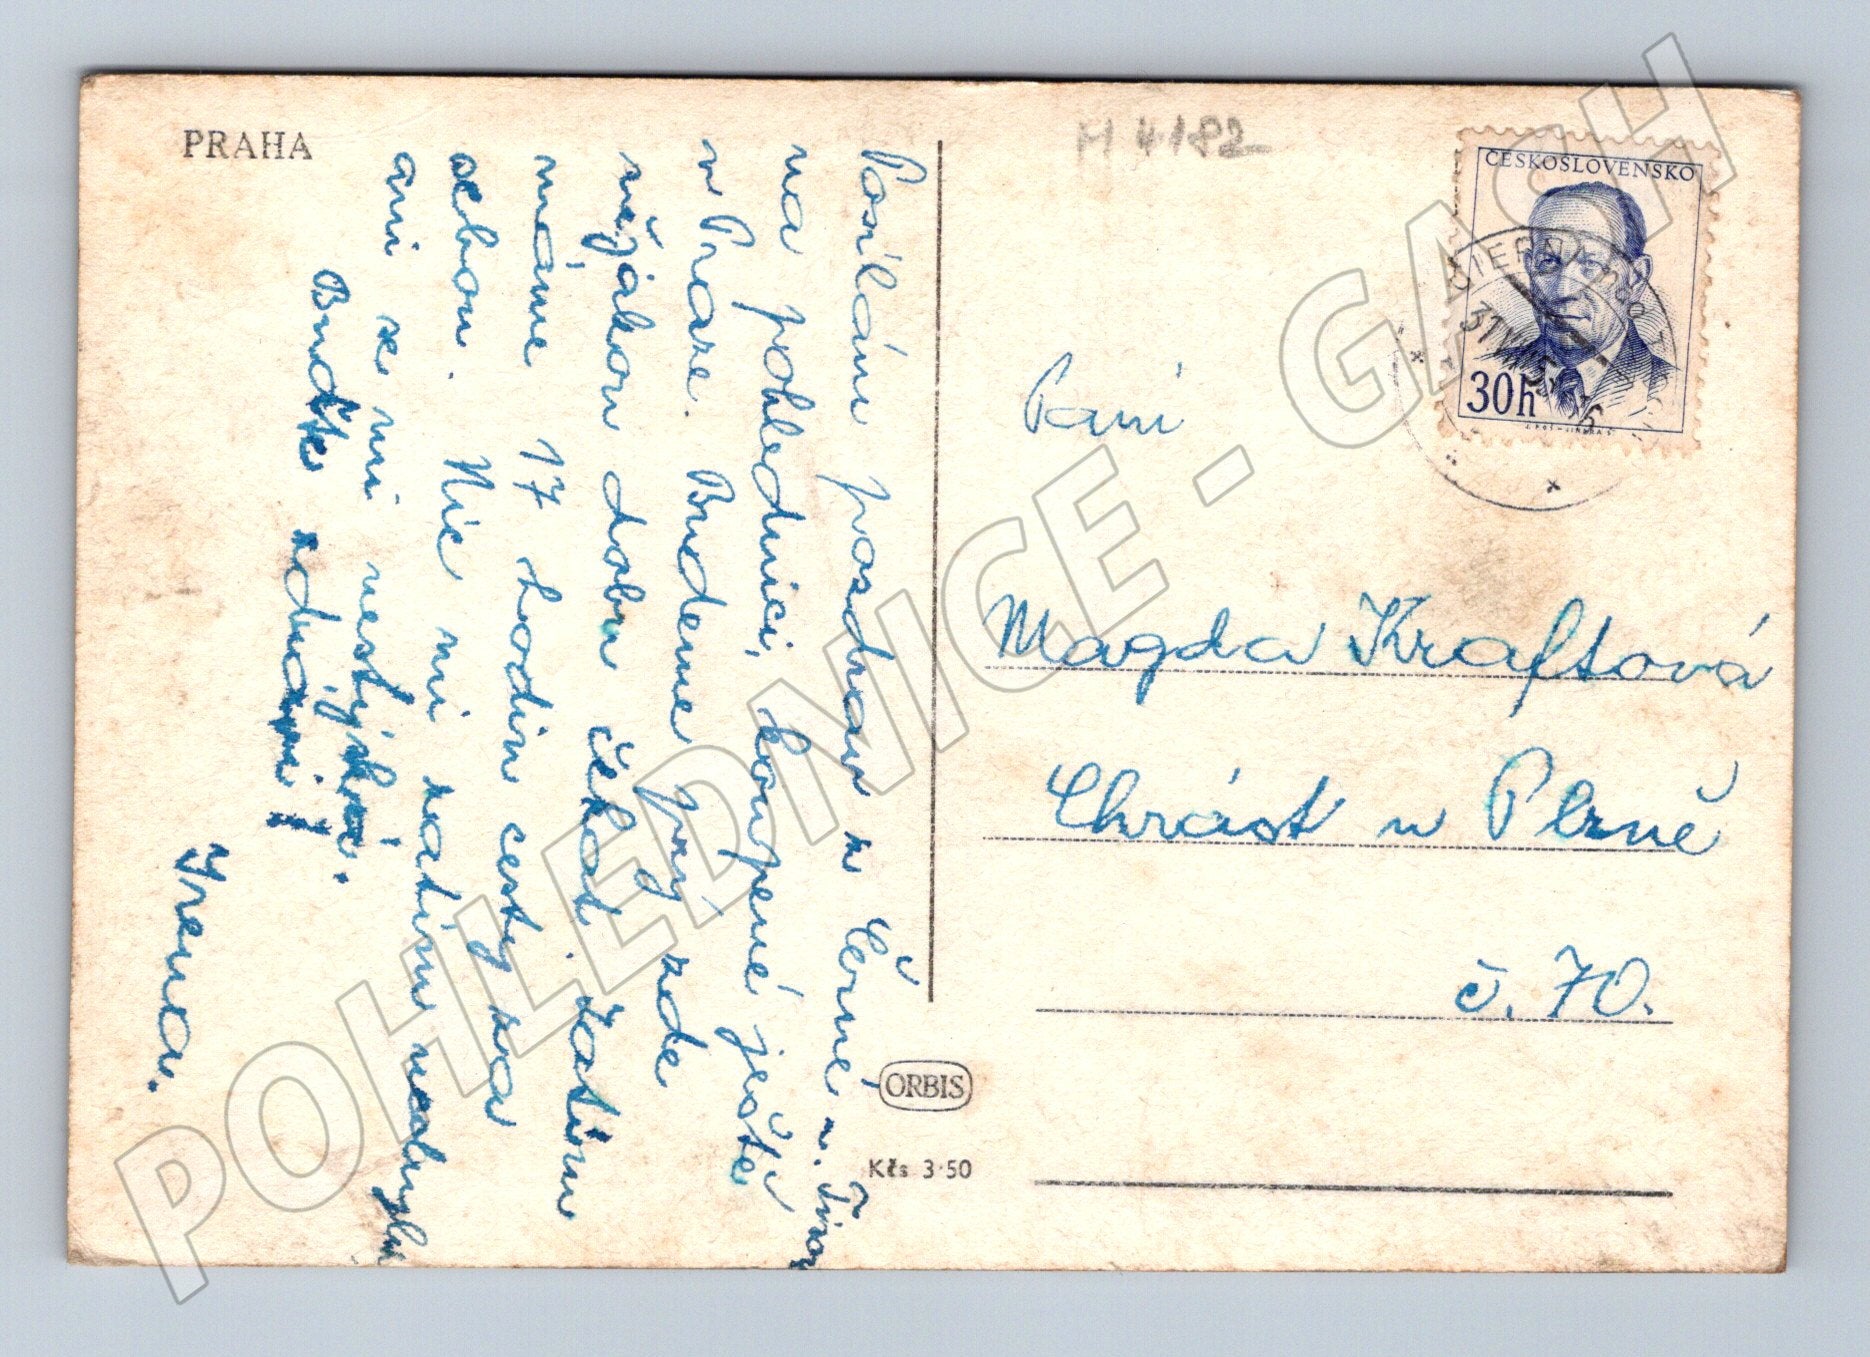 PRAHA
M 4182
ČESKOSLOVENSKO
30h
Posílám pozdrav z Černé n. Tisou
na pohlednici, koupené ještě
v Praze. Budeme prý zde
nějakou dobu čekat. Zatím
máme 17 hodin cesty za
sebou. Nic mi zatím nechybí
ani se mi nestýská.
Buďte zdrávi!
Irena.
Paní
Magda Kraftová
Chrást u Plzně
č. 70.
ORBIS
Kčs 3·50
POHLEDNICE - GASH